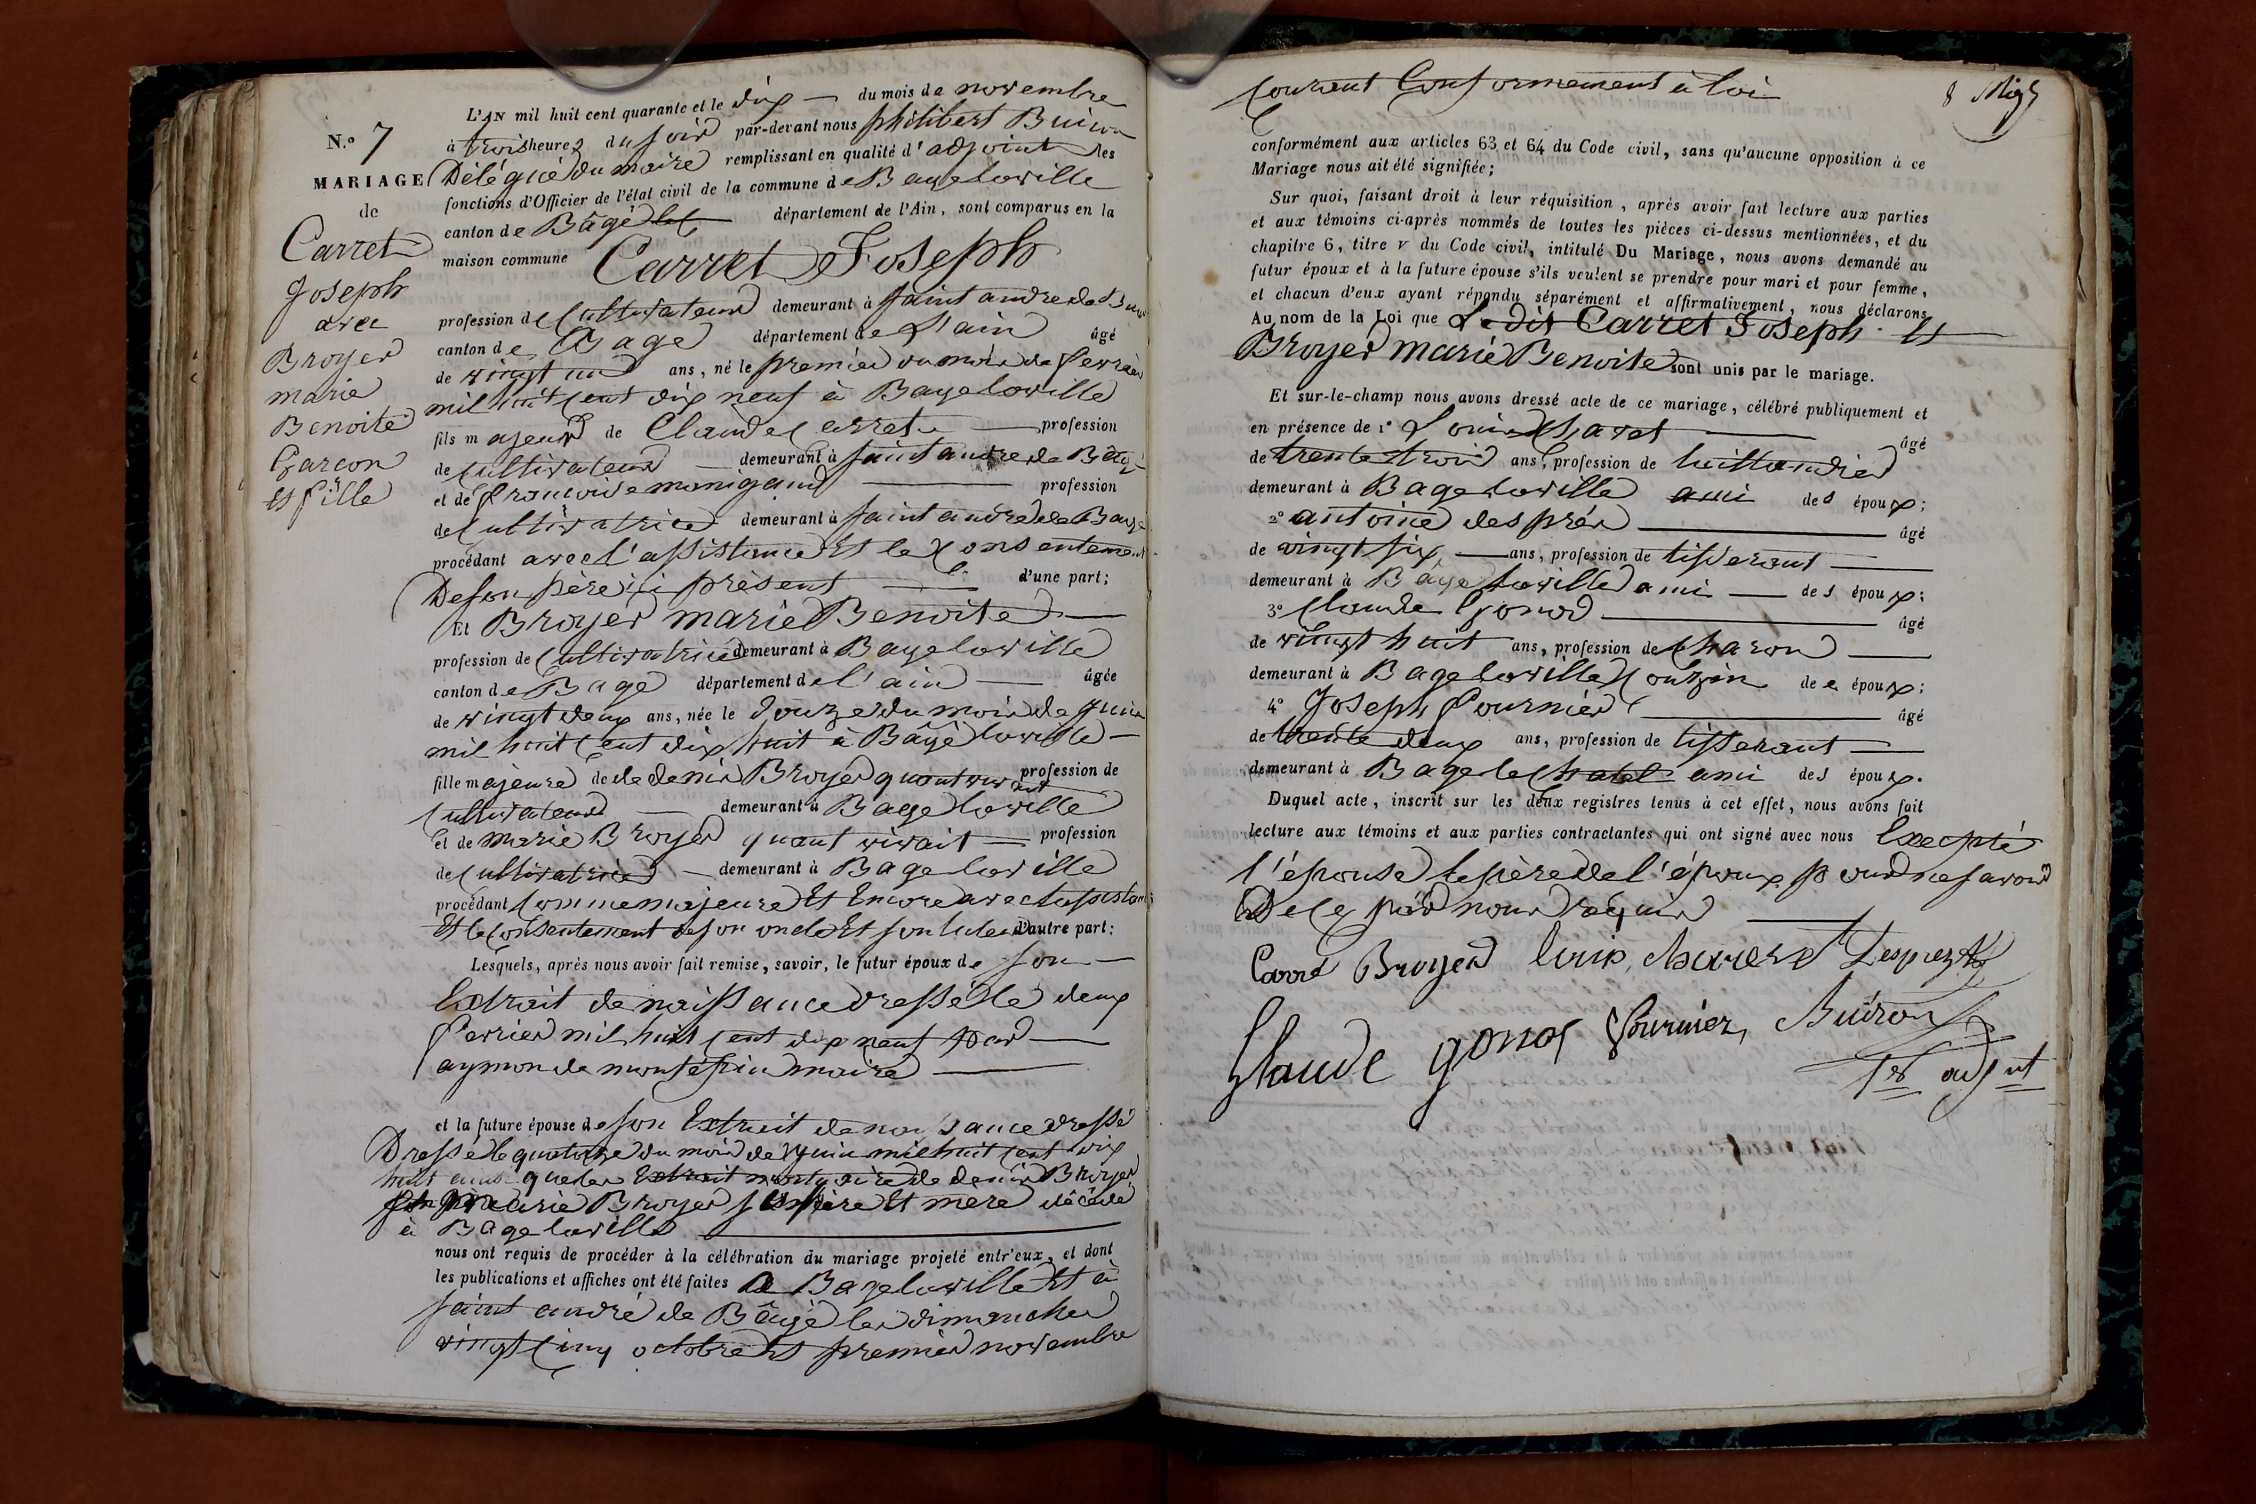 N.° 7
MARIAGE
de
Carret
Joseph
avec
Broyer
marie
Benoite
Garcon
et fille
L'AN mil huit cent quarante et le dix du mois de novembre
à trois heures du soir par-devant nous philibert Buiron
Délégué du maire remplissant en qualité d'adjoint les
fonctions d'Officier de l'état civil de la commune de Bagelaville
canton de Bâgé département de l'Ain, sont comparus en la
maison commune Carret Joseph
profession de Cultivateur demeurant à saint andre de
canton de Bage département de L'ain âgé
de vingt un ans, né le premier du mois de fevrier
mil huit cent dix neuf à Bagelaville
fils majeur de Claude Carret profession
de Cultivateur demeurant à saint andre de Bâgé
et de francoise monigaud profession
de Cultivatrice demeurant à saint andré de Bagé
procédant avec l'assistance et le Consentement
De son père ici présent d'une part;
Et Broyer marie Benoite
profession de Cultivatrice demeurant à Bagelaville
canton de Bagé département de l'ain âgée
de vingt deux ans, née le douze du mois de juin
mil huit Cent dix huit à Bagé laville
fille majeure de de denis Broyer quant vivait profession de
Cultivateur demeurant à Bagelaville
et de marie Broyer quant vivait profession
de Cultivatrice demeurant à Bagelaville
procédant Comme majeure et Encore avec
et le Consentement de son oncle et son d'autre part:
Lesquels, après nous avoir fait remise, savoir, le futur époux de son
Extrait de naissance dressé le deux
fevrier mil huit cent dix neuf par
aymon de montépin maire
et la future épouse de son Extrait de naissance dressé
Dressé le quatorze du mois de juin mil huit cent dix
huit ainsi que les Extrait mortuaire de denis Broyer
marie Broyer père et mere décédé
à Bagelaville
nous ont requis de procéder à la célébration du mariage projeté entr'eux, et dont
les publications et affiches ont été faites à Bagelaville et à
saint andré de Bâgé les dimanches
vingt cinq octobre et premier novembre
8
courant Conformement à loi
conformément aux articles 63 et 64 du Code civil, sans qu'aucune opposition à ce
Mariage nous ait été signifiée;
Sur quoi, faisant droit à leur réquisition, après avoir fait lecture aux parties
et aux témoins ci-après nommés de toutes les pièces ci-dessus mentionnées, et du
chapitre 6, titre V du Code civil, intitulé Du Mariage, nous avons demandé au
futur époux et à la future épouse s'ils veulent se prendre pour mari et pour femme,
et chacun d'eux ayant répondu séparément et affirmativement, nous déclarons
Au nom de la Loi que Ledit Carret Joseph et
Broyer marie Benoite sont unis par le mariage.
Et sur-le-champ nous avons dressé acte de ce mariage, célébré publiquement et
en présence de 1° Louis Charet âgé
de trente trois ans, profession de taillandier
demeurant à Bagelaville ami des époux;
2° antoine després âgé
de vingt six ans, profession de tisserant
demeurant à Bâge laville ami des époux;
3° Claude Gonod âgé
de vingt huit ans, profession de Charon
demeurant à Bagelaville Couzin de époux;
4° Joseph fournier âgé
de trente deux ans, profession de tisserant
demeurant à Bage le Chatel ami des époux.
Duquel acte, inscrit sur les deux registres tenus à cet effet, nous avons fait
lecture aux témoins et aux parties contractantes qui ont signé avec nous Excepté
l'épouse le père de l'époux pour ne savoir
De ce par nous requis
Carré Broyer Desprez
Claude gonod fournier Buiron
adjnt